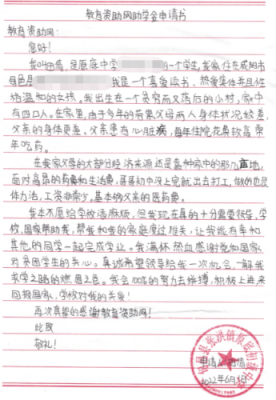 教育资助网助学金申请书
教育资助网:
您好!
我叫 是原底中学 的一个学生,我家住在咸阳市
旬邑县 我是一个喜爱读书,热爱集体并且性
格温和的女孩。我出生在一个贫穷而又落后的小村,家中
有四口人。在家里,由于多年的 父母两人身体状况较差
父亲的身体更差。父亲患有心脏病,每年住院花费较高,常
年吃药。
在我家父母的大部分经济来源还是靠种家中的那几亩地,
面对高昂的药费和生活费,哥哥初中没上完就出去打工,做的也是
体力活,工资非常少,基本够父亲的医药费。
我本不愿给学校添麻烦,但我现在真的十分需要领导、学
校、国家帮助我,帮我和我的家庭度过难关,让我能有幸和
其他的同学一起完成学业。我满怀热血感谢党和国家
对贫困学生的关心。真诚希望领导给我一次机会,了解我
求学之路的燃眉之急。我会100%的努力去拼搏,积极上进来
回报国家,学校对我的关爱!
再次真挚的感谢教育资助网!
此致
敬礼!
申请人
2022年6月1日